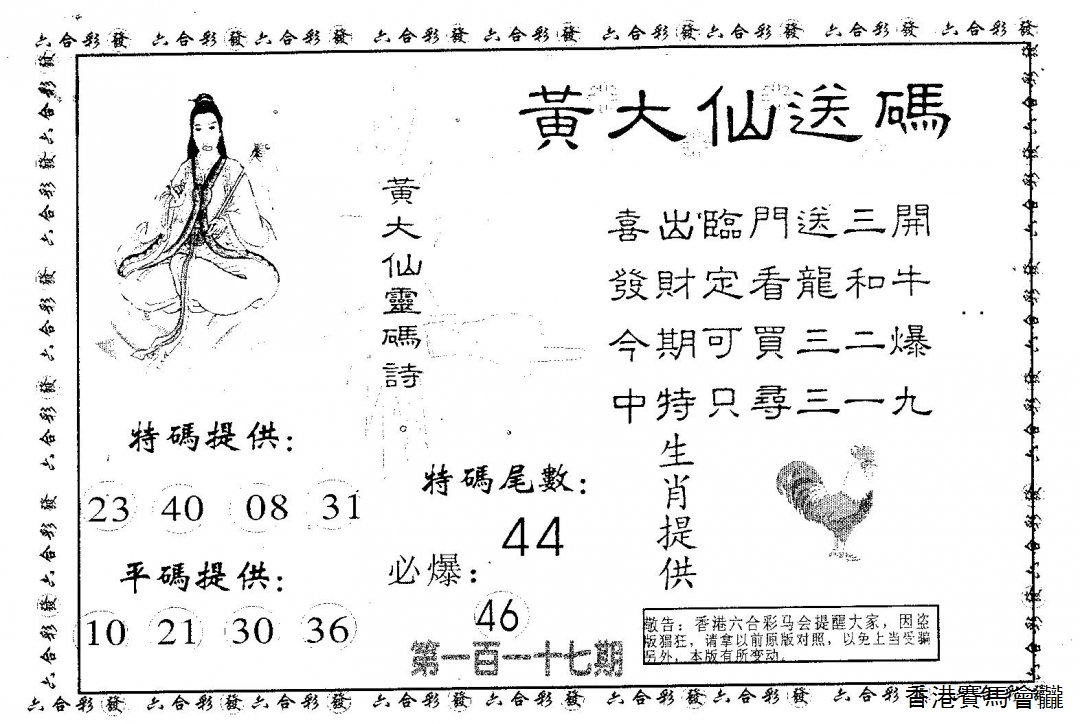 六合彩發 六合彩發六合彩發 六合彩發 六合彩發 六合彩發六合彩發 六合彩發 六合彩發
黃大仙送碼
黃大仙靈碼詩
喜出臨門送三開
發財定看龍和牛
今期可買三二爆
中特只尋三一九
特碼提供：
23 40 08 31
平碼提供：
10 21 30 36
特碼尾數：
44
必爆：
46
第一百一十七期
生肖提供
敬告：香港六合彩马会提醒大家，因盗
版猖狂，请拿以前原版对照，以免上当受骗
另外，本版有所变动。
六合彩發 六合彩發 六合彩發 六合彩發 六合彩發 六合彩發 六合彩發 六合彩發
香港賽馬會